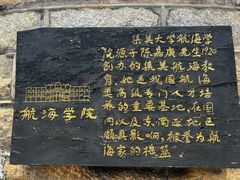 集美大学航海学
院源于陈嘉庚先生1920
创办的集美航海教
育，她是我国航海
类高级专门人才培
养的重要基地，在国
内以及东南亚地区
颇具影响，被誉为航
海家的摇篮。
航海学院